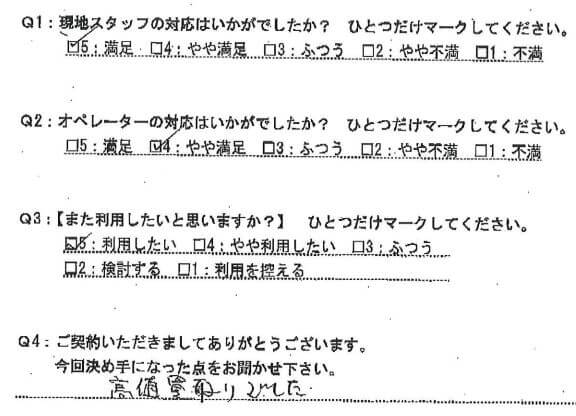 Q1：現地スタッフの対応はいかがでしたか？　ひとつだけマークしてください。
☑5：満足　□4：やや満足　□3：ふつう　□2：やや不満　□1：不満
Q2：オペレーターの対応はいかがでしたか？　ひとつだけマークしてください。
□5：満足　☑4：やや満足　□3：ふつう　□2：やや不満　□1：不満
Q3：【また利用したいと思いますか？】　ひとつだけマークしてください。
☑5：利用したい　□4：やや利用したい　□3：ふつう
□2：検討する　□1：利用を控える
Q4：ご契約いただきましてありがとうございます。
今回決め手になった点をお聞かせ下さい。
高価買取りでした.